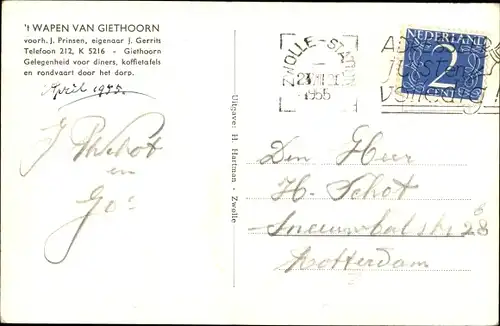 't WAPEN VAN GIETHOORN
voorh. J. Prinsen, eigenaar J. Gerrits
Telefoon 212, K 5216 - Giethoorn
Gelegenheid voor diners, koffietafels
en rondvaart door het dorp.
April 1955.
J. Schot
en
Go
Uitgave: H. Hartman - Zwolle
ZWOLLE-STATION
1955
NEDERLAND
2
CENT
Den Heer
H. Schot
28 b
Rotterdam